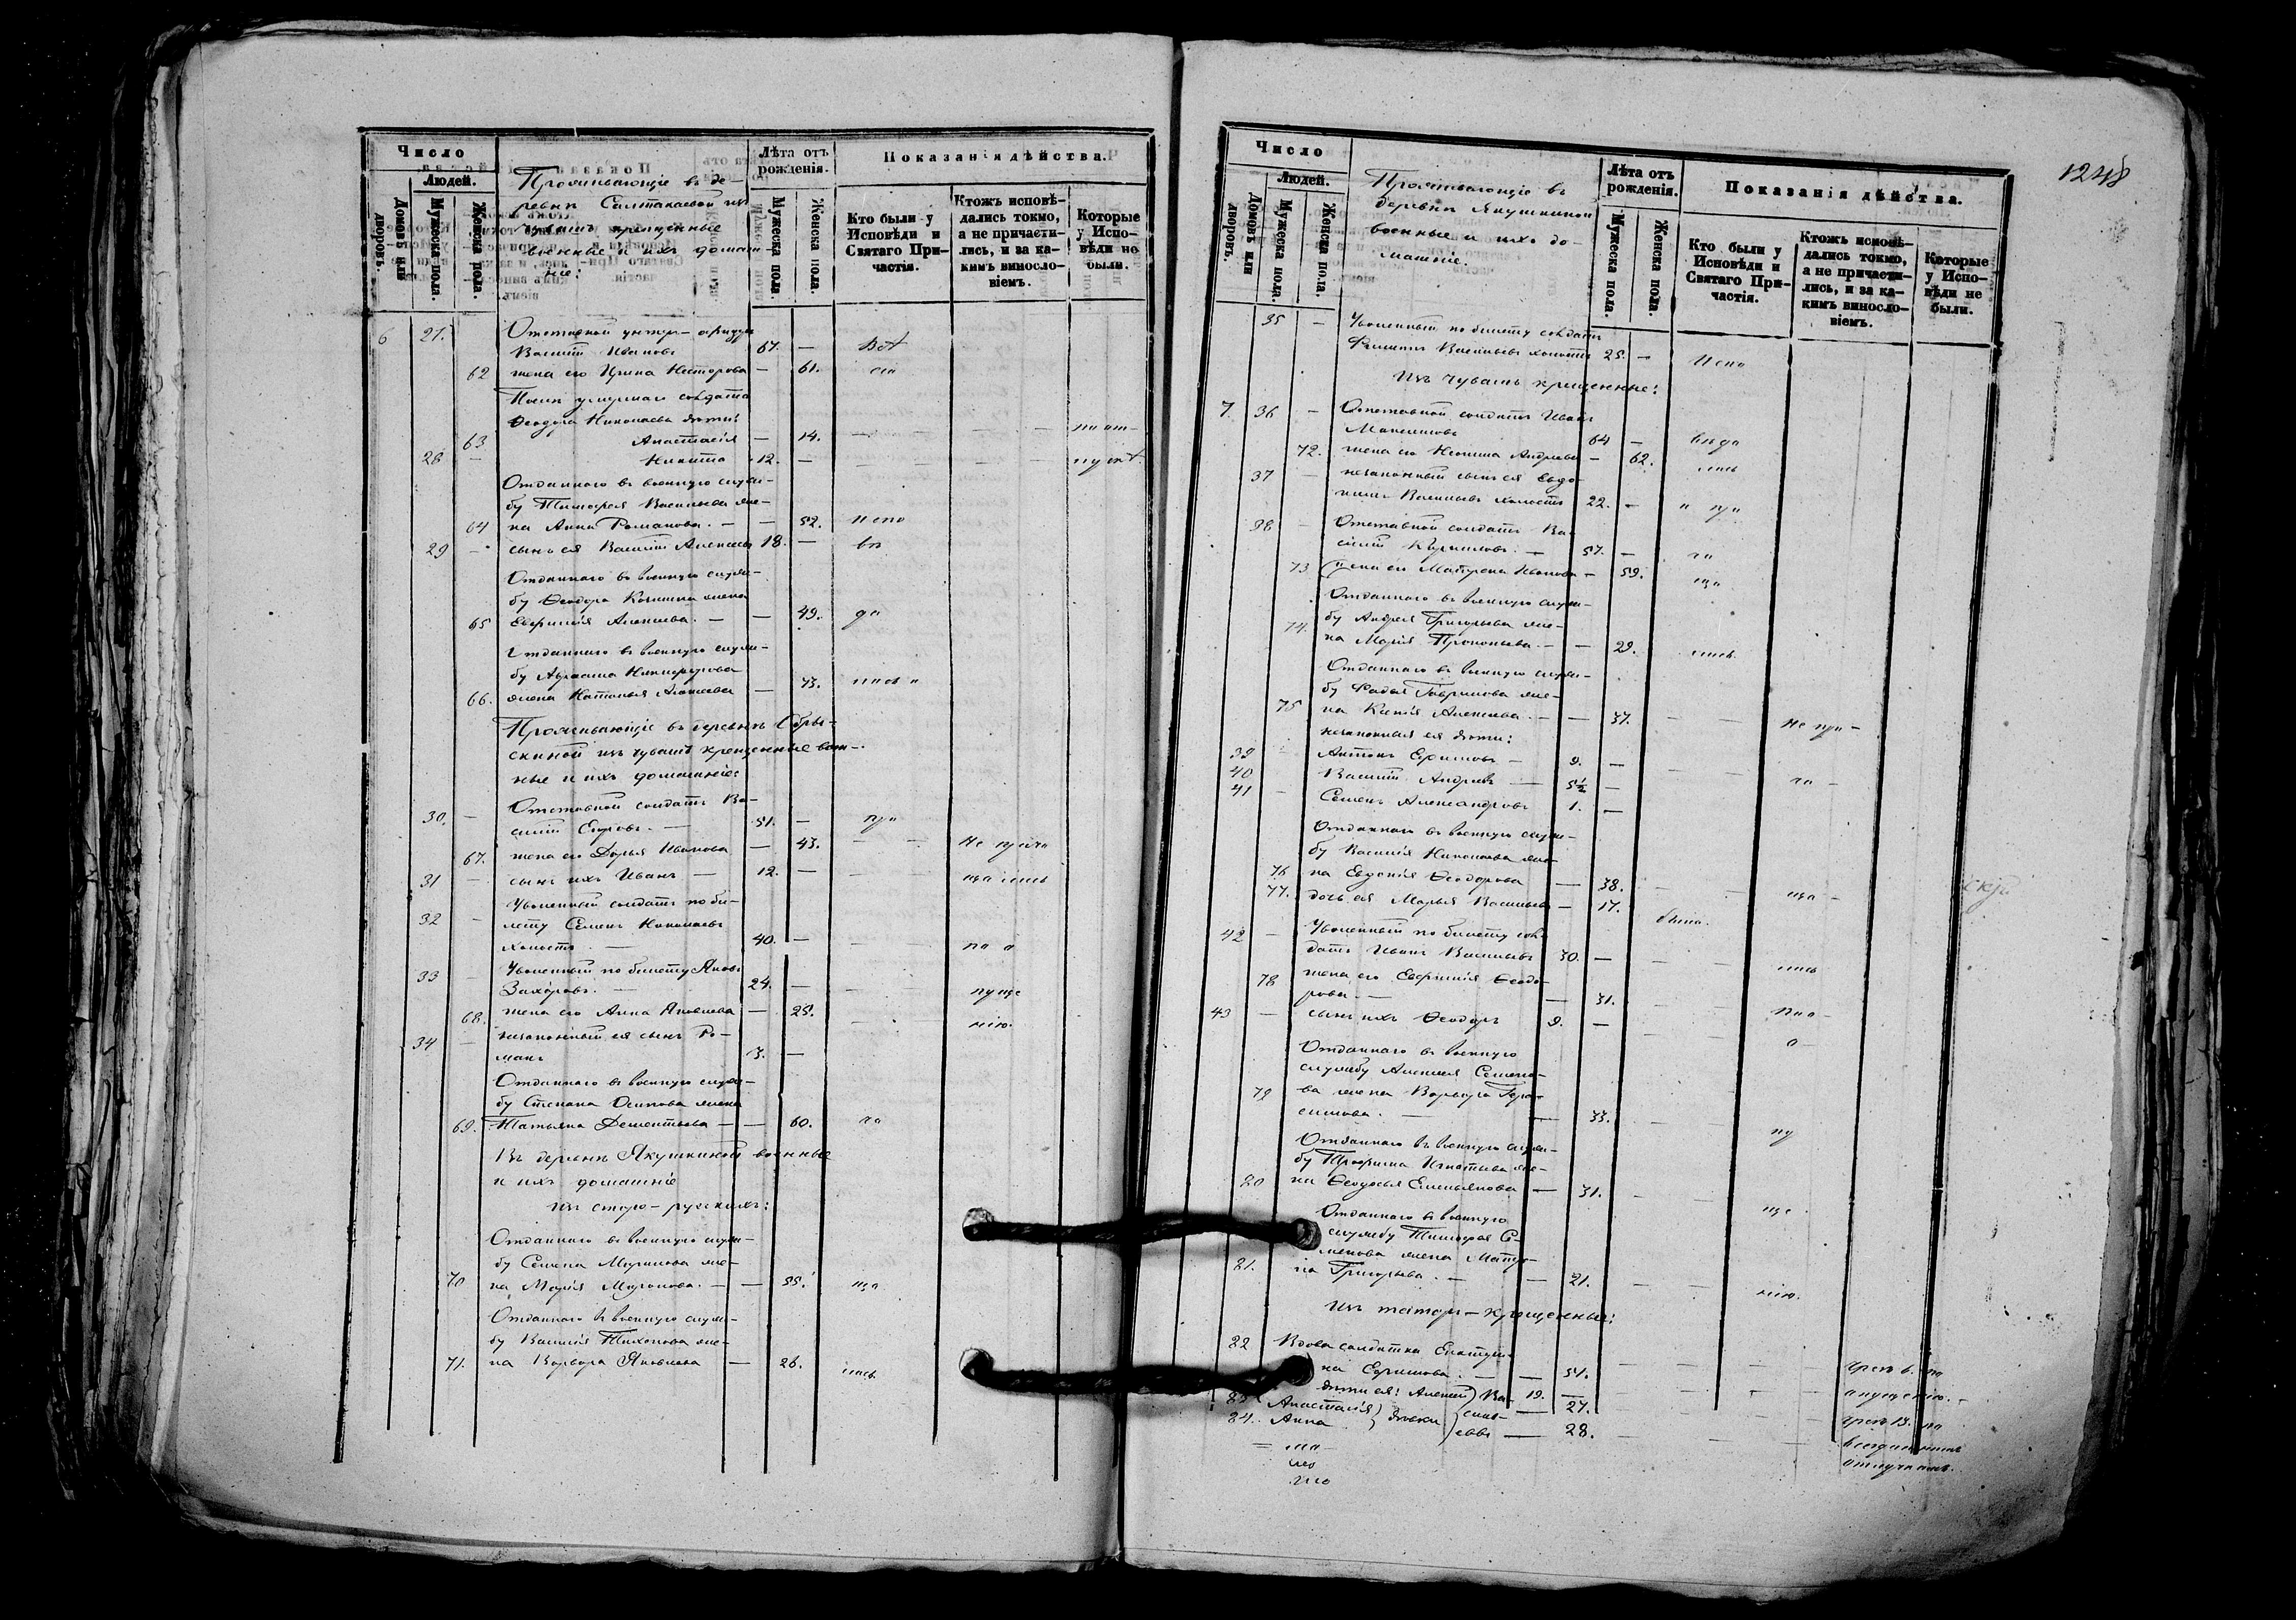 Число
Людей.
Домовъ или дворовъ.
Мужеска пола.
Женска пола.
Проживающіе въ де-
ревнѣ Салтакаевой изъ
чувашъ крещенные
военные и ихъ домаш-
ніе:
Лѣта отъ рожденія.
Мужеска пола.
Женска пола.
Показанія дѣйства.
Кто были у Исповѣди и Святаго Причастія.
Ктожъ исповѣдались токмо, а не причастились, и за какимъ винословіемъ.
Которые у Исповѣди не были.
6 27. Отставной унтеръ-офицеръ
Василій Ивановъ 67. — Всѣ
62 жена его Ирина Несторова — 61. сіи
Послѣ умершаго солдата
Ѳеодора Николаева дѣти:
63 Анастасія — 14. — — — по от-
28 — Никита 12. — — — — пуск.
Отданнаго въ военную служ-
бу Тимофея Васильева же-
64 на Анна Романова. — — 52. испо
29 — сынъ ея Василій Алексѣевъ 18. — вѣ
Отданнаго въ военную служ-
бу Ѳеодора Козмина жена
65 Евфимія Алексѣева. — — 49. да
Отданнаго въ военную служ-
бу Абрама Никифорова
66. жена Наталья Алексѣева — 43. лись и
Проживающіе въ деревнѣ
изъ чувашъ крещенные воен-
ные и ихъ домашніе:
Отставной солдатъ Ва-
30. — силій Егоровъ. — 51. — при
67. жена его Дарья Иванова — 43. — — Не прича
31 — сынъ ихъ Иванъ — 12. — — щались
Уволенный солдатъ по би-
32 — лету Семенъ Николаевъ
холостъ. — 40. — — по о
33 — Уволенный по билету Яковъ
Захаровъ. — 24. — — пуще
68. жена его Анна Яковлева — 25. — нію.
34 — незаконный ея сынъ Ро-
манъ 3. —
Отданнаго въ военную служ-
бу Степана Осипова жена
69. Татьяна Дементьева — — 60. ча
Въ деревнѣ Якушкиной военные
и ихъ домашніе
изъ старо-русскихъ:
Отданнаго въ военную служ-
бу Семена же-
70 на Марія Миронова. — — 55. ща
Отданнаго въ военную служ-
бу Василія Тихонова же-
71. на Варвара Яковлева — 26. лись
1248
Число
Людей.
Домовъ или дворовъ.
Мужеска пола.
Женска пола.
Проживающіе въ
деревнѣ Якушкиной
военные и ихъ до-
машніе.
Лѣта отъ рожденія.
Мужеска пола.
Женска пола.
Показанія дѣйства.
Кто были у Исповѣди и Святаго Причастія.
Ктожъ исповѣдались токмо, а не причастились, и за какимъ винословіемъ.
Которые у Исповѣди не были.
35 — Уволенный по билету солдатъ
Филиппъ Васильевъ холостъ 25. — Испо
Изъ чувашъ крещенные:
7. 36 — Отставной солдатъ Иванъ
Максимовъ 64 — вѣда
72. жена его Андреева — 62. лись
37 — незаконный сынъ ея Евдо-
кимъ Васильевъ холостъ 22. — и при
38 — Отставной солдатъ Ва-
силій Кириловъ. — 57. — ча
73. жена его Матрена Иванова — 59. ща
Отданнаго въ военную служ-
бу Андрея Григорьева же-
74. на Марія Прокопьева. — — 29. лись.
Отданнаго въ военную служ-
бу Фадея Гаврилова же-
75 на Ксенія Алексѣева. — — 37. — — Не при-
незаконныя ея дѣти:
39 — Антонъ Ефимовъ — 9. —
40 Василій Андреевъ — 5½ — — ча-
41 — Семенъ Александровъ 1. —
Отданнаго въ военную служ-
бу Василія Николаева же-
76 на Евгенія Ѳеодорова — 38. — ща-
77. дочь ея Марья Васильева — 17. была.
42 — Уволенный по билету сол-
датъ Иванъ Васильевъ 30. — — — лись
78 жена его Евфимія Ѳеодо-
рова — — 31. — —
43 — сынъ ихъ Ѳеодоръ 9. — — по-
Отданнаго въ военную о-
службу Алексѣя Семено-
79 ва жена Варвара Гера-
симова. — — 33. — — пу
Отданнаго въ военную служ-
бу Трофима Игнатьева же-
80 на Ѳеодосья Емельянова — 31. — — ще
Отданнаго въ военную
службу Тимофея Се-
менова жена Матре-
81. на Григорьева. — — 21. — — нію.
Изъ татаръ-крещенные:
82 Вдова солдатка Екатери-
на Ефимова. — — 54. — — —
дѣти ея: Алексѣй 19. —
83 Анастасія Васи- — 27.
84. Анна дѣвки — 28.